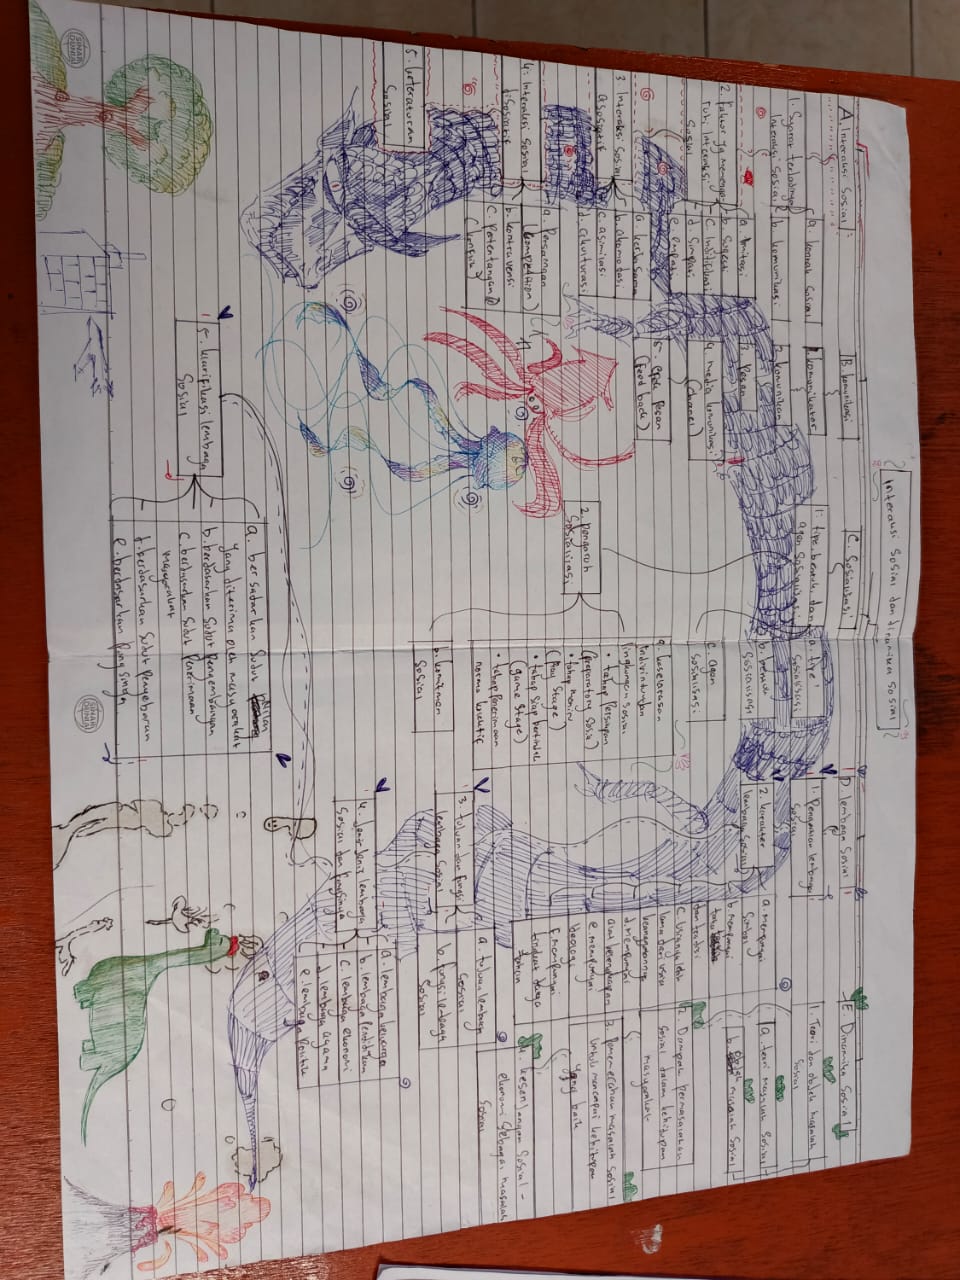 Interaksi sosial dan dinamika sosial
A. Interaksi Sosial :
1. Syarat terjadinya
Interaksi sosial
a. kontak sosial
b. komunikasi
2. Faktor yg
ruhi Interaksi
Sosial
a. Imitasi
b. Sugesti
d. Simpati
e. empati
3. Interaksi Sosial
asosiatif
a. kerja sama
b. akomodasi
c. asimilasi
d. akulturasi
4. Interaksi Sosial
disosiatif
a. Persaingan
b. kontravensi
c. pertentangan
5. keteraturan
Sosial
B. komunikasi
1. komunikator
2. komunikan
3. Pesan
4. media komunikasi
5. efek pesan
(feed back)
C. Sosialisasi
1. tipe, bentuk, dan
agen sosialisasi
a. tipe
sosialisasi
b. bentuk
sosialisasi
c. agen
sosialisasi
2. pengaruh
Sosialisasi
lingkungan sosial
• tahap persiapan
• tahap meniru
(Play Stage)
• tahap siap bertindak
(game stage)
• tahap penerimaan
norma kolektif
b. komitmen
Sosial
D. lembaga Sosial
1. Pengertian lembaga
sosial
2. karakter
lembaga sosial
a. mempunyai
Simbol
b. mempunyai
dan tradisi
c. Usianya lebih
lama dari usia
d. mempunyai
e. mempunyai
ideologi
f. mempunyai
tingkat
3. tujuan dan fungsi
lembaga Sosial
a. tujuan lembaga
sosial
b. fungsi lembaga
sosial
4. Jenis-Jenis lembaga
Sosial dan fungsinya
a. lembaga keluarga
b. lembaga pendidikan
c. lembaga ekonomi
d. lembaga agama
e. lembaga politik
klasifikasi lembaga
Sosial
a. berdasarkan sudut
yang diterima oleh masyarakat
b. berdasarkan sudut pengembangan
c. berdasarkan sudut penerimaan
masyarakat
d. berdasarkan sudut penyebaran
e. berdasarkan fungsinya
E. Dinamika Sosial
1. Teori dan objek masalah
Sosial
a. teori masalah sosial
b. objek masalah sosial
2. Dampak permasalahan
sosial dalam kehidupan
masyarakat
3. Pemecahan masalah sosial
untuk mencapai kehidupan
yang baik
4. kesenjangan sosial-
ekonomi sebagai masalah
sosial
SINAR
DUNIA
SINAR
DUNIA